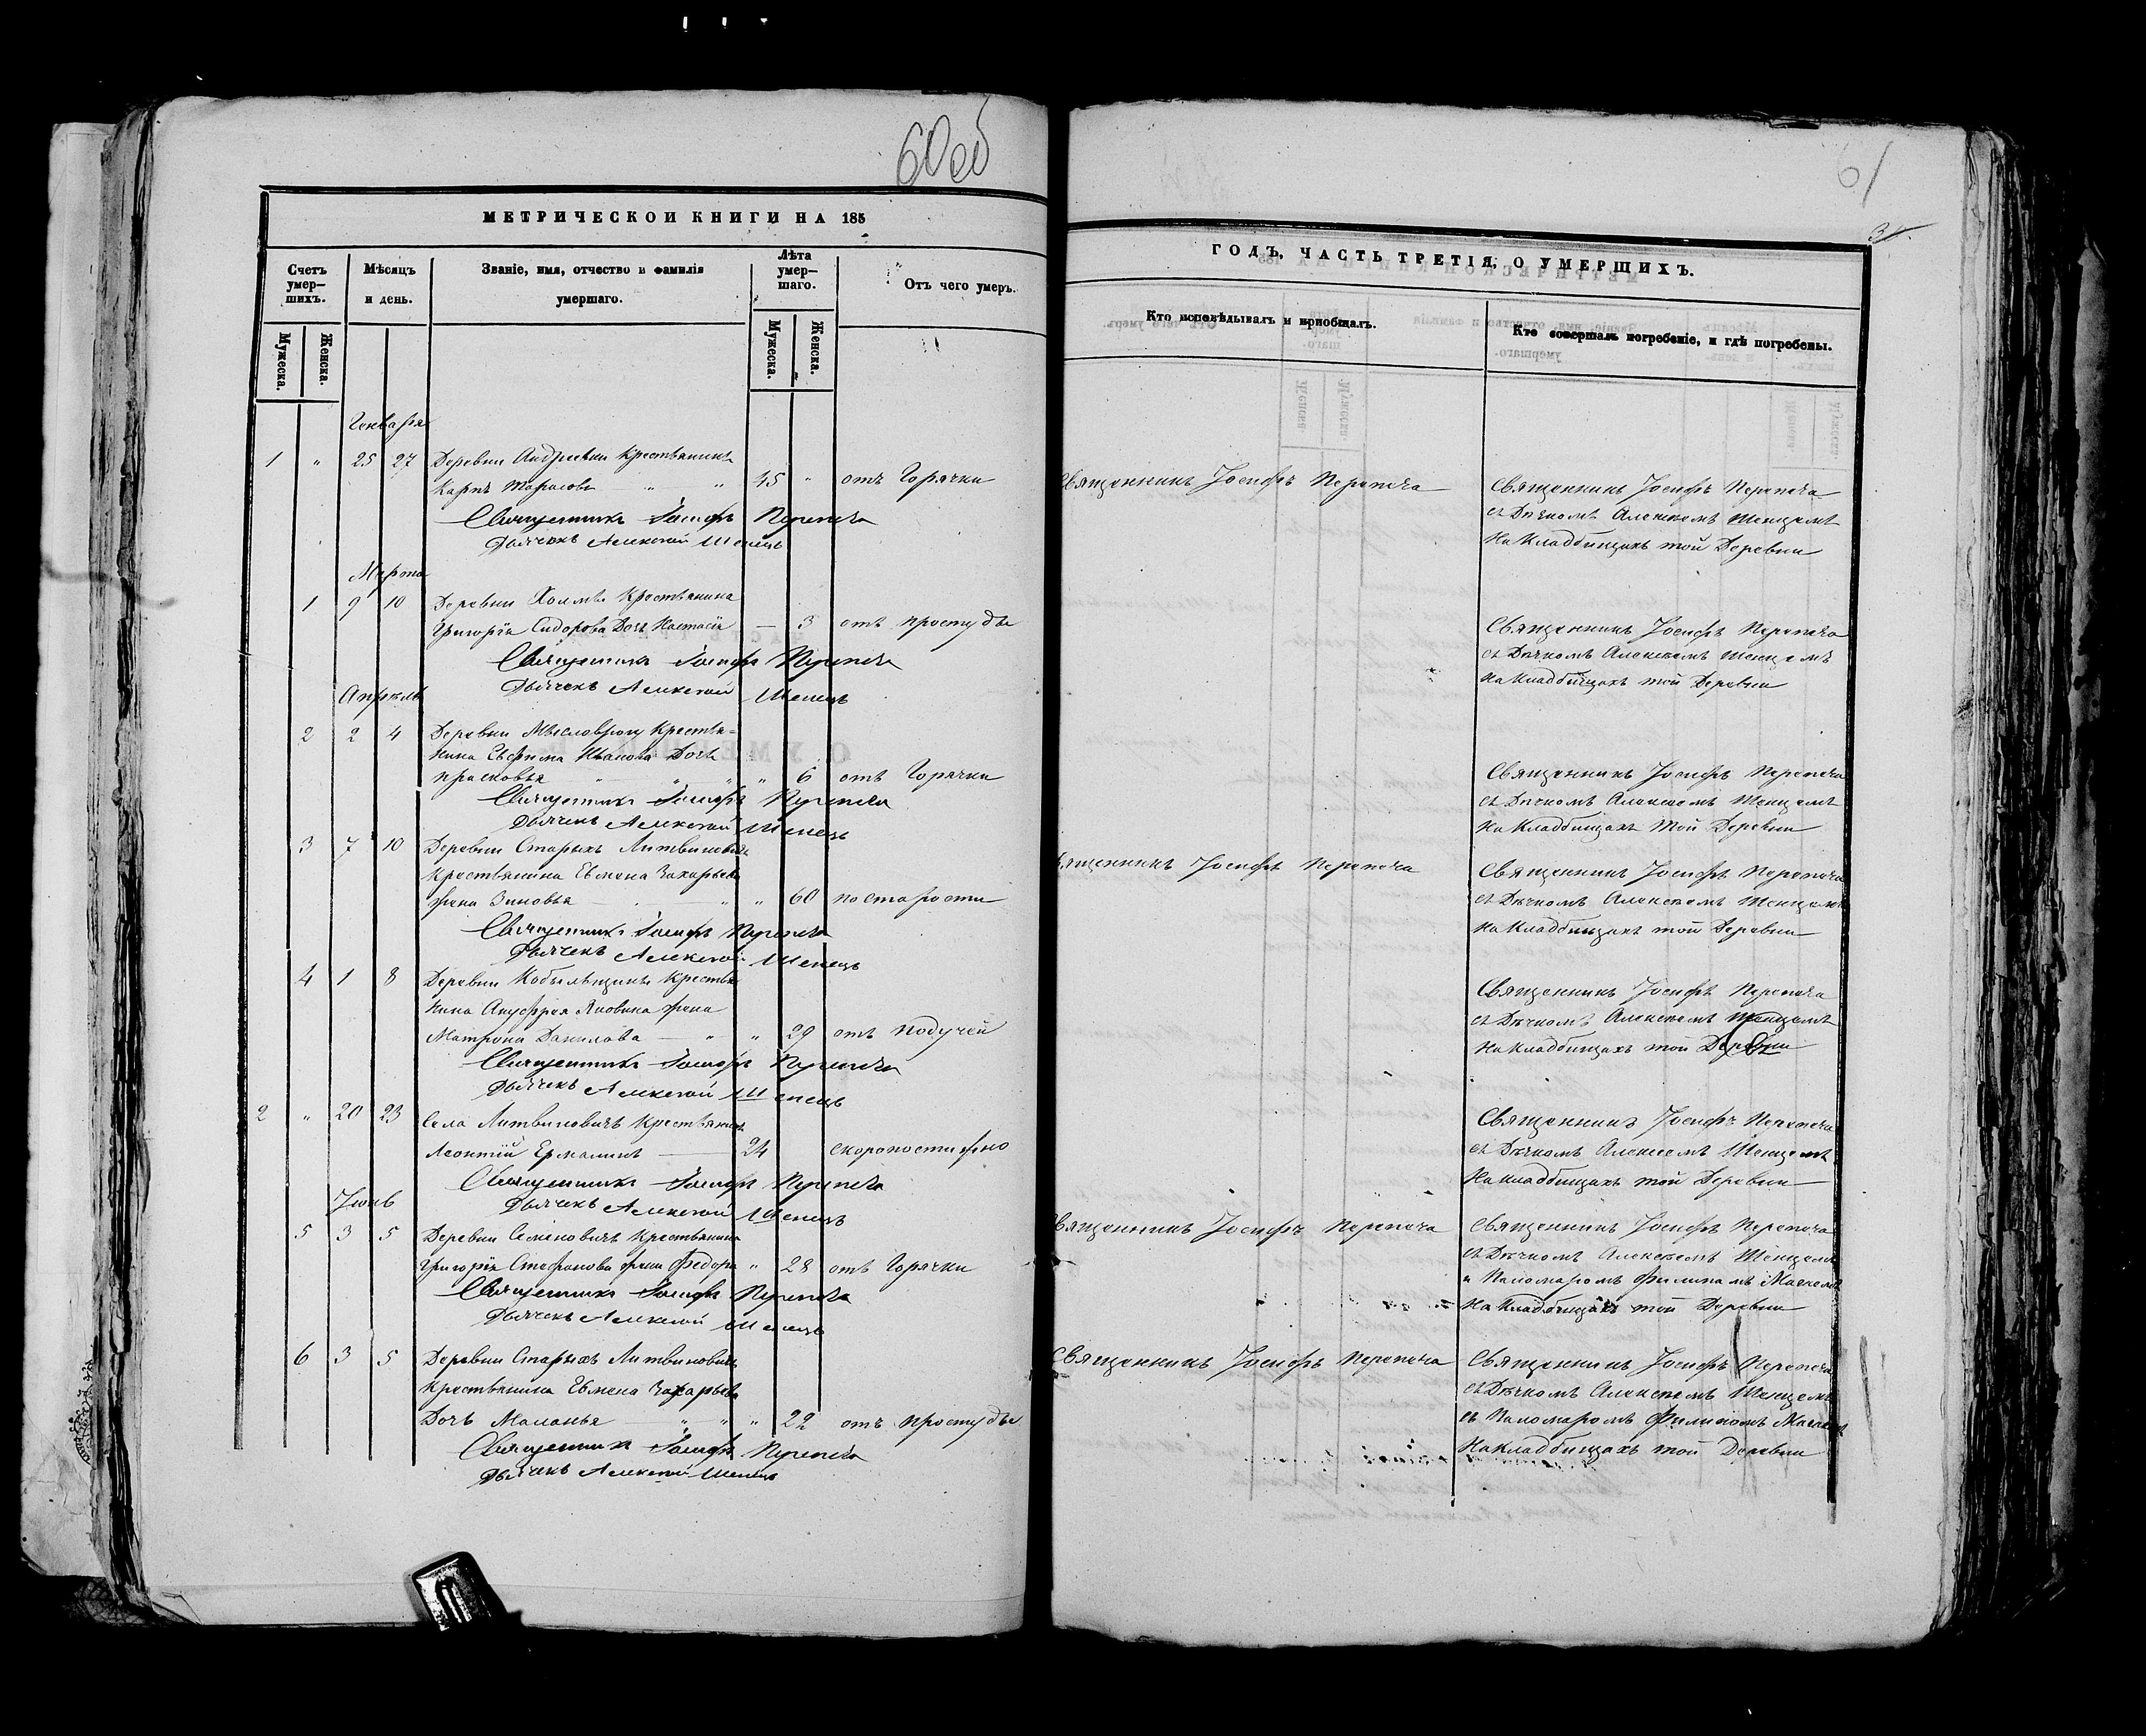 60 об
МЕТРИЧЕСКОЙ КНИГИ НА 185
Счетъ умер-шихъ.
Мѣсяцъ и день.
Званіе, имя, отчество и фамилія умершаго.
Лѣта умер-шаго.
Отъ чего умеръ.
Мужеска.
Женска.
Мужеска.
Женска.
Генваря
1 " 25 27 Деревни Андреевки Крестьянинъ
Карпъ Тарасовъ " " 45 " отъ Горячки
Священникъ Іосифъ Перепеча
Дьячекъ Алексей Шенецъ
Марта
1 9 10 Деревни Холмы Крестьянина
Григорія Сидорова Дочь Настасія — 3 отъ простуды
Священникъ Іосифъ Перепеча
Дьячекъ Алексей Шенецъ
Апрѣль
2 2 4 Деревни Крестья-
нина Ефима Иванова Дочь
Прасковья " " " 6 отъ Горячки
Священникъ Іосифъ Перепеча
Дьячекъ Алексей Шенецъ
3 7 10 Деревни Старыхъ Литвиновичь
Крестьянина Евмена Захарьева
жена Зиновья " " 60 по старости
Священникъ Іосифъ Перепеча
Дьячекъ Алексей Шенецъ
4 1 8 Деревни Кобылыщины Крестья
нина Ануфрея Яковина жена
Матрона Данилова — " " 29 отъ подучей
Священникъ Іосифъ Перепеча
Дьячекъ Алексей Шенецъ
2 " 20 23 Села Литвиновичь Крестьянинъ
Леонтій Ермалинъ — 24 скоропостижно
Священникъ Іосифъ Перепеча
Дьячекъ Алексей Шенецъ
Іюнь
5 3 5 Деревни Семеновичь Крестьянина
Григорія Стефанова жена Федора " 28 отъ Горячки
Священникъ Іосифъ Перепеча
Дьячекъ Алексей Шенецъ
6 3 5 Деревни Старыхъ Литвиновичь
Крестьянина Евмена Захарьева
Дочь Маланья " " " 22 отъ простуды
Священникъ Іосифъ Перепеча
Дьячекъ Алексей Шенецъ
61
ГОДЪ, ЧАСТЬ ТРЕТІЯ, О УМЕРШИХЪ.
Кто исповѣдывалъ и пріобщалъ.
Кто совершалъ погребеніе, и гдѣ погребены.
Священникъ Іосифъ Перепеча
Священникъ Іосифъ Перепеча
съ Дьячкомъ Алексѣемъ Шенцемъ
На Кладбищахъ той Деревни
Священникъ Іосифъ Перепеча
съ Дьячкомъ Алексѣемъ Шенцемъ
На Кладбищахъ той Деревни
Священникъ Іосифъ Перепеча
съ Дьячкомъ Алексѣемъ Шенцемъ
На Кладбищахъ той Деревни
Священникъ Іосифъ Перепеча
Священникъ Іосифъ Перепеча
съ Дьячкомъ Алексѣемъ Шенцемъ
На Кладбищахъ той Деревни
Священникъ Іосифъ Перепеча
съ Дьячкомъ Алексѣемъ Шенцемъ
На Кладбищахъ той Деревни
Священникъ Іосифъ Перепеча
съ Дьячкомъ Алексѣемъ Шенцемъ
На Кладбищахъ той Деревни
Священникъ Іосифъ Перепеча
Священникъ Іосифъ Перепеча
съ Дьячкомъ Алексѣемъ Шенцемъ
и Паномаромъ Филипамъ
На Кладбищахъ той Деревни
Священникъ Іосифъ Перепеча
Священникъ Іосифъ Перепеча
съ Дьячкомъ Алексѣемъ Шенцемъ
съ Паномаромъ Филипомъ
На Кладбищахъ той Деревни